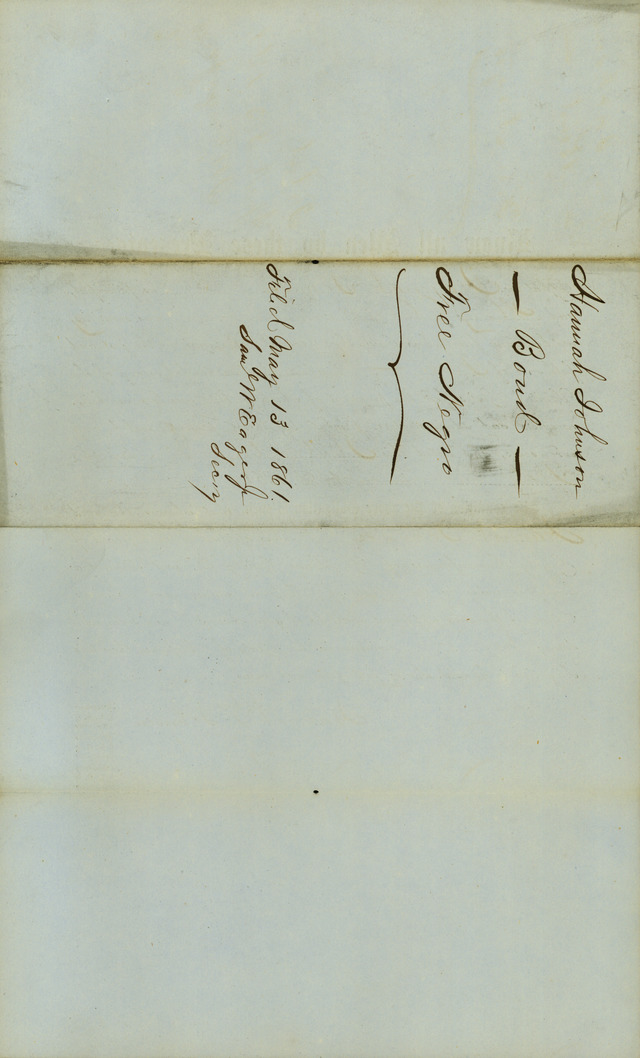 Hannah Johnson
— Bond —
Free Negro
Filed May 13 1861.
Saml W Eager Jr
Secy